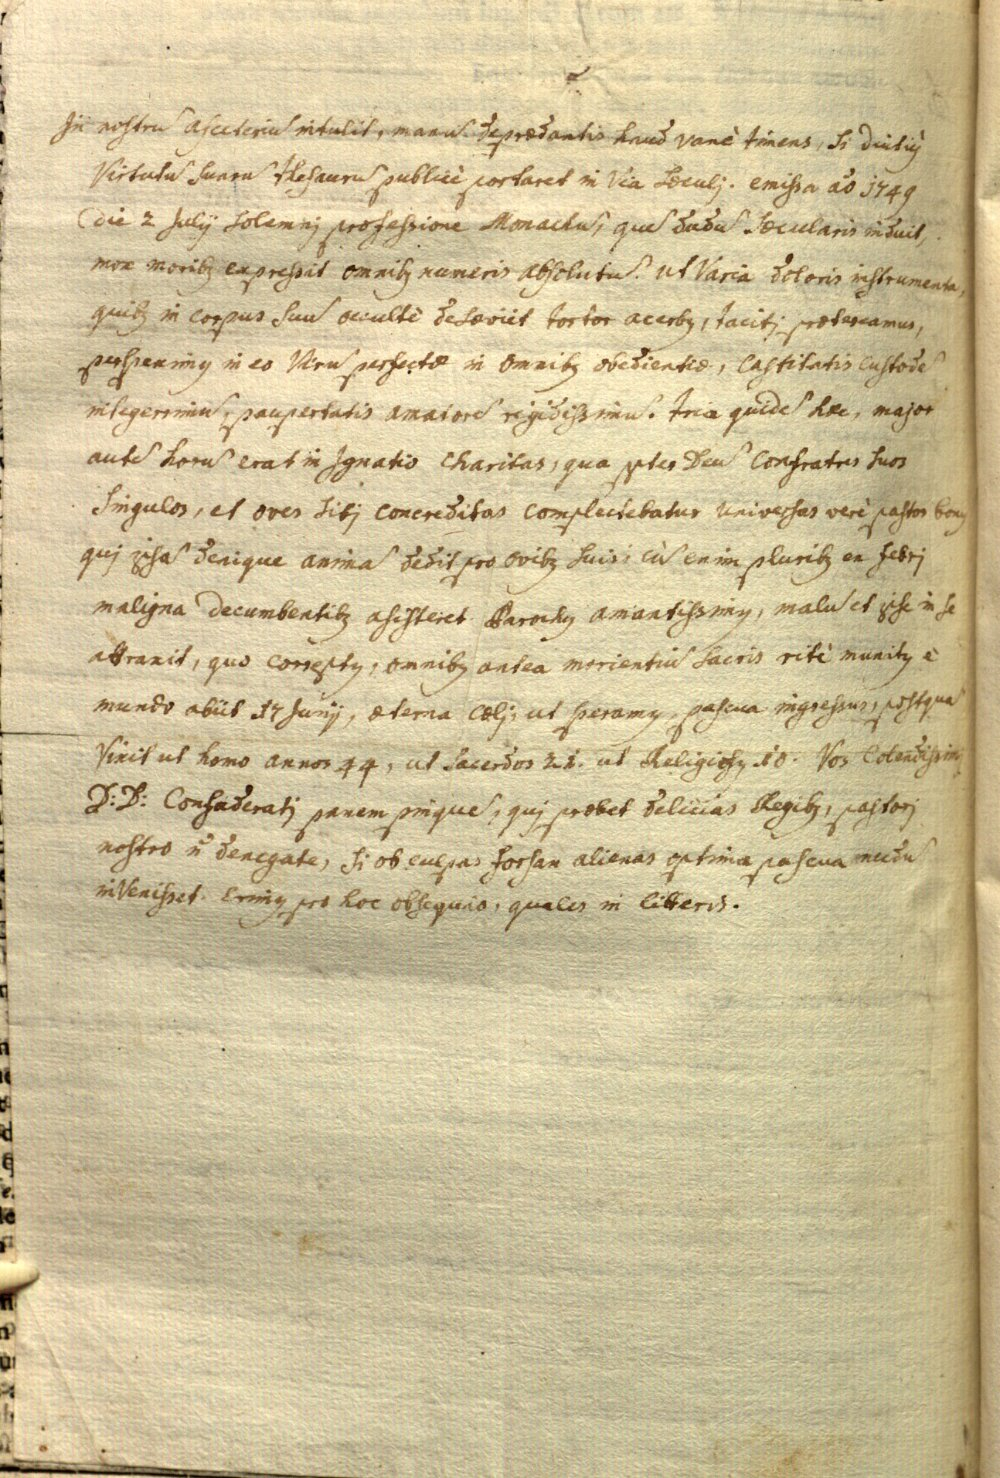 In nostrũ Asceteriũ intulit, manũ deprædantis haud vanè timens, si diutiùs
Virtutũ suarũ thesaurũ publicè portaret in via sæculj. emissa aõ 1749
die 2 Julij solemnj professione Monachũ, quẽ dudũ sæcularis induit,
mox moribꝫ expressit omnibꝫ numeris absolutũ. ut varia doloris instrumenta,
quibꝫ in corpus suũ occultè desæviit tortor acerbꝰ, tacitj prætereamus,
perspeximꝰ in eo Virũ perfectæ in omnibꝫ obedientiæ, castitatis custodẽ
integerrimũ, paupertatis amatorẽ rigidissimũ. tria quidẽ hæc, major
autẽ horũ erat in Ignatio Charitas, qua ꝓpter Deũ Confratres suos
singulos, et oves sibj concreditas complectebatur universas verè pastor bonꝰ
quj ipsã denique animã dedit pro ovibꝫ suis; cũ enim pluribꝫ ex febrj
maligna decumbentibꝫ assisteret Parochꝰ amantissimꝰ, malũ et ipse in se
attraxit, quo correptꝰ, omnibꝫ antea morientiũ sacris ritè munitꝰ è
mundo abiit 17 Junij, æterna cælj, ut speramꝰ, pascua ingressus, postquã
Vixit ut homo annos 44, ut Sacerdos 21. ut Religiosꝰ 10. Vos Colendissimj
D: D: Confæderatj panem pinguẽ, quj præbet delicias Regibꝫ, pastorj
nostro ñ denegate, si ob culpas forsan alienas optima pascua nudũ
invenisset. Erimꝰ pro hoc obsequio, quales in litteris.